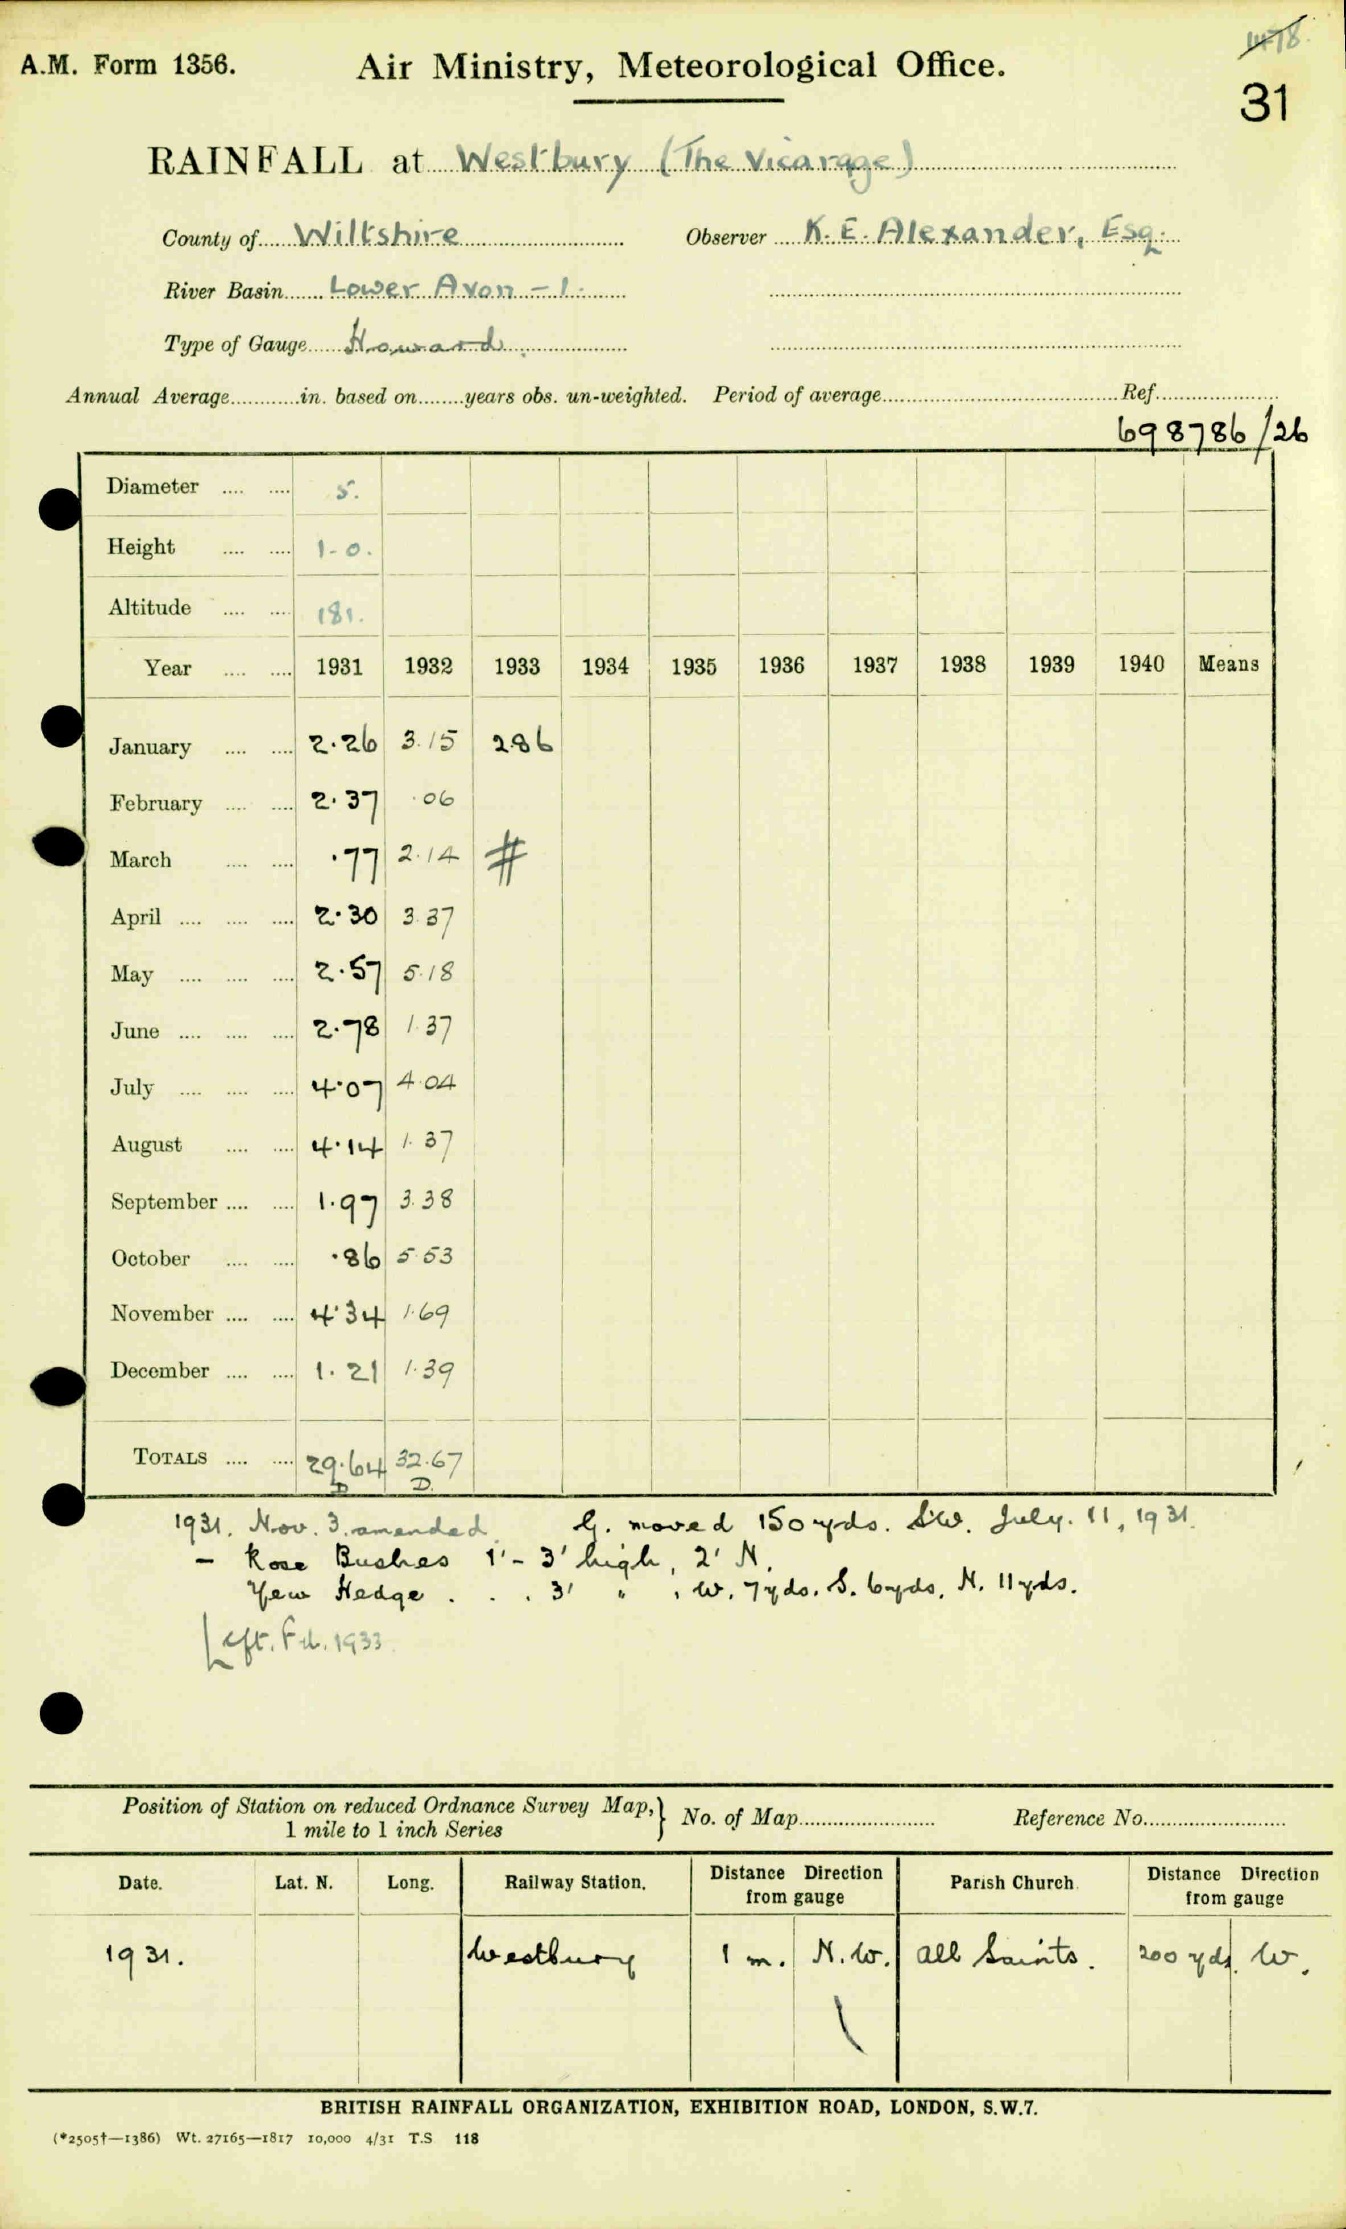 1478.
A.M. Form 1356.
Air Ministry, Meteorological Office.
31
RAINFALL at Westbury (The Vicarage)
County of Wiltshire Observer K. E. Alexander, Esq.
River Basin Lower Avon - 1.
Type of Gauge Howard.
Annual Average............in. based on........years obs. un-weighted. Period of average............ Ref............
698786/26
Diameter .... .... 5.
Height .... .... 1-0.
Altitude .... .... 181.
Year .... .... 1931 1932 1933 1934 1935 1936 1937 1938 1939 1940 Means
January .... .... 2.26 3.15 286
February .... .... 2.37 .06
March .... .... .77 2.14 #
April .... .... .... 2.30 3.37
May .... .... .... 2.57 5.18
June .... .... .... 2.78 1.37
July .... .... .... 4.07 4.04
August .... .... 4.14 1.37
September .... .... 1.97 3.38
October .... .... .86 5.53
November .... .... 4.34 1.69
December .... .... 1.21 1.39
TOTALS .... .... 29.64 32.67
D D.
1931. Nov. 3. amended. G. moved 150 yds. SW. July. 11, 1931.
— Rose Bushes 1' - 3' high, 2' N.
Yew Hedge . . . 3' " , W. 7yds. S. 6yds. N. 11yds.
Left. Feb. 1933.
Position of Station on reduced Ordnance Survey Map,} No. of Map............ Reference No............
1 mile to 1 inch Series
Date. Lat. N. Long. Railway Station. Distance Direction from gauge Parish Church Distance Direction from gauge
1931. Westbury 1 m. N.W. All Saints. 200 yds. W.
BRITISH RAINFALL ORGANIZATION, EXHIBITION ROAD, LONDON, S.W.7.
(*2505†—1386) Wt. 27165—1817 10,000 4/31 T.S 118